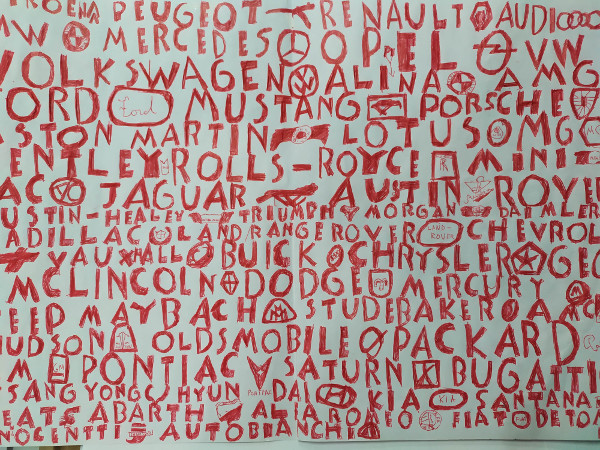 PEUGEOT RENAULT AUDI
MW MERCEDES OPEL VW
VOLKSWAGEN ALPINA AMG
ORD Ford MUSTANG PORSCHE
STON MARTIN LOTUS MG
ENTLEY ROLLS-ROYCE MINI
AC JAGUAR AUSTIN ROVER
USTIN-HEALEY TRIUMPH MORGAN DAIMLER
ADILLAC LANDRANGEROVER LAND-ROVER CHEVROL
VAUXHALL BUICK CHRYSLER GEO
MC LINCOLN DODGE MERCURY
EEP MAYBACH STUDEBAKER AMC
UDSON OLDSMOBILE PACKARD
M GM PONTIAC SATURN BUGATTI
SANG YONG HYUNDAI KIA KIA SANTANA
EAT ABARTH ALFA ROMEO FIAT DETO
NOCENTTI AUTOBIANCHI